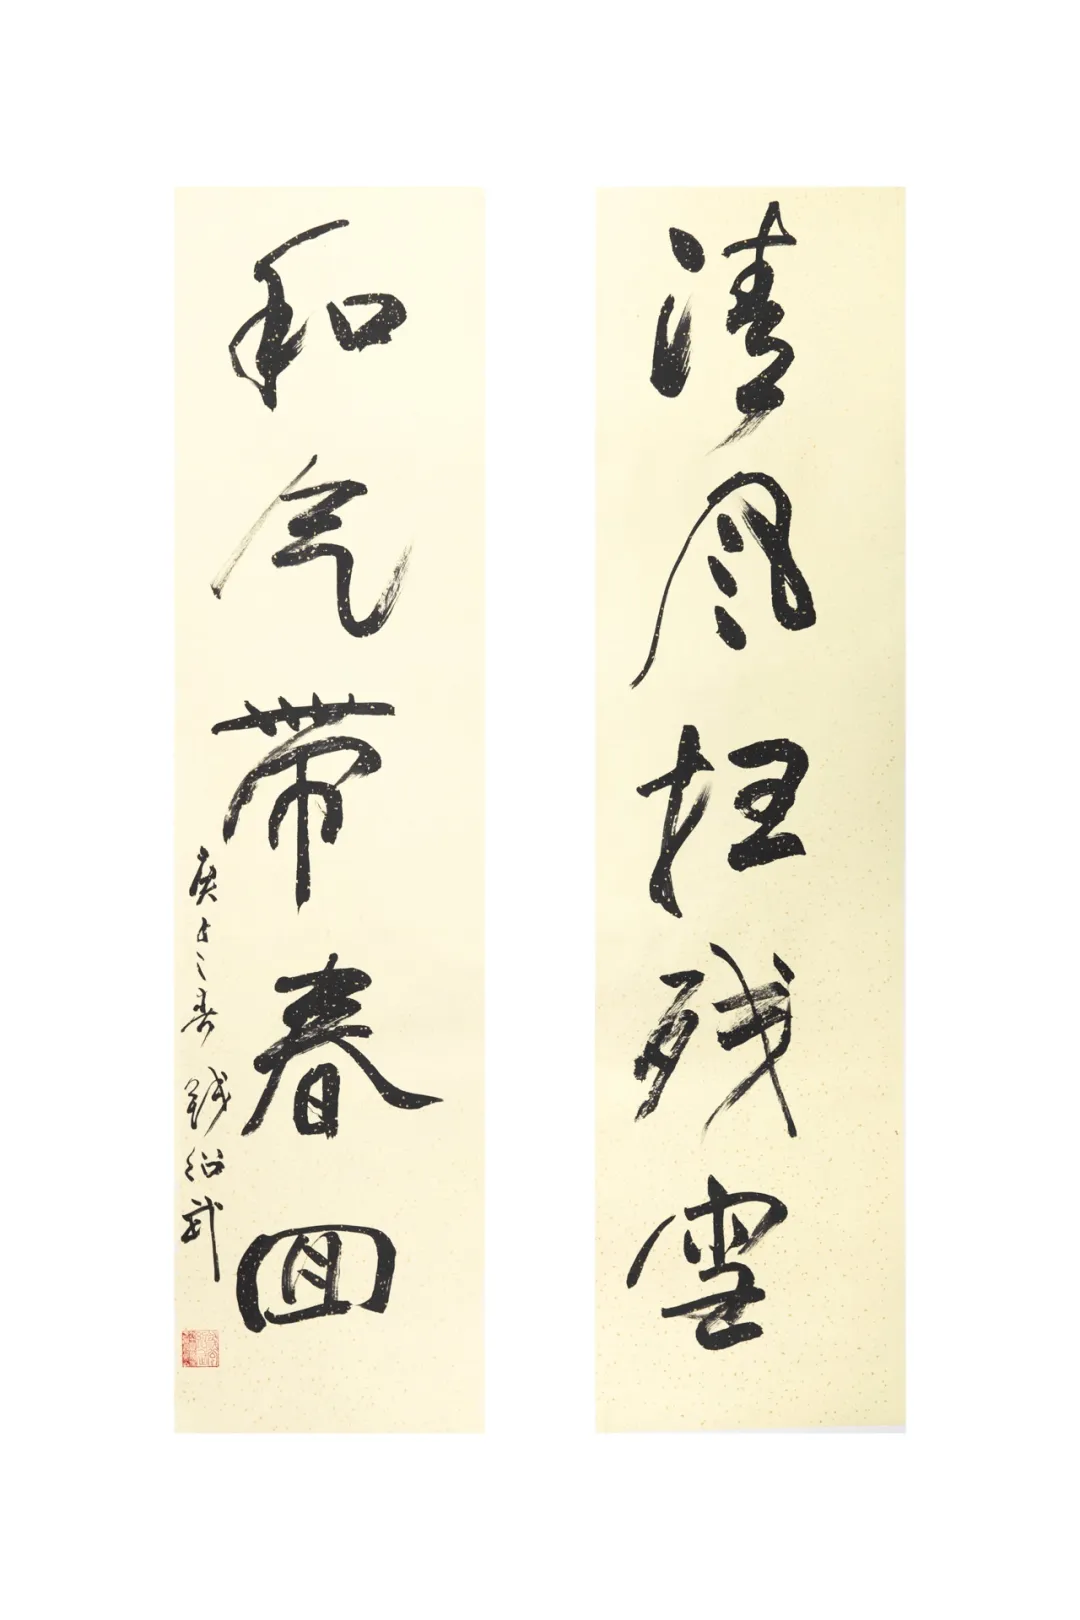 清风扫残雪
和气带春回
庚子之春 钱绍武